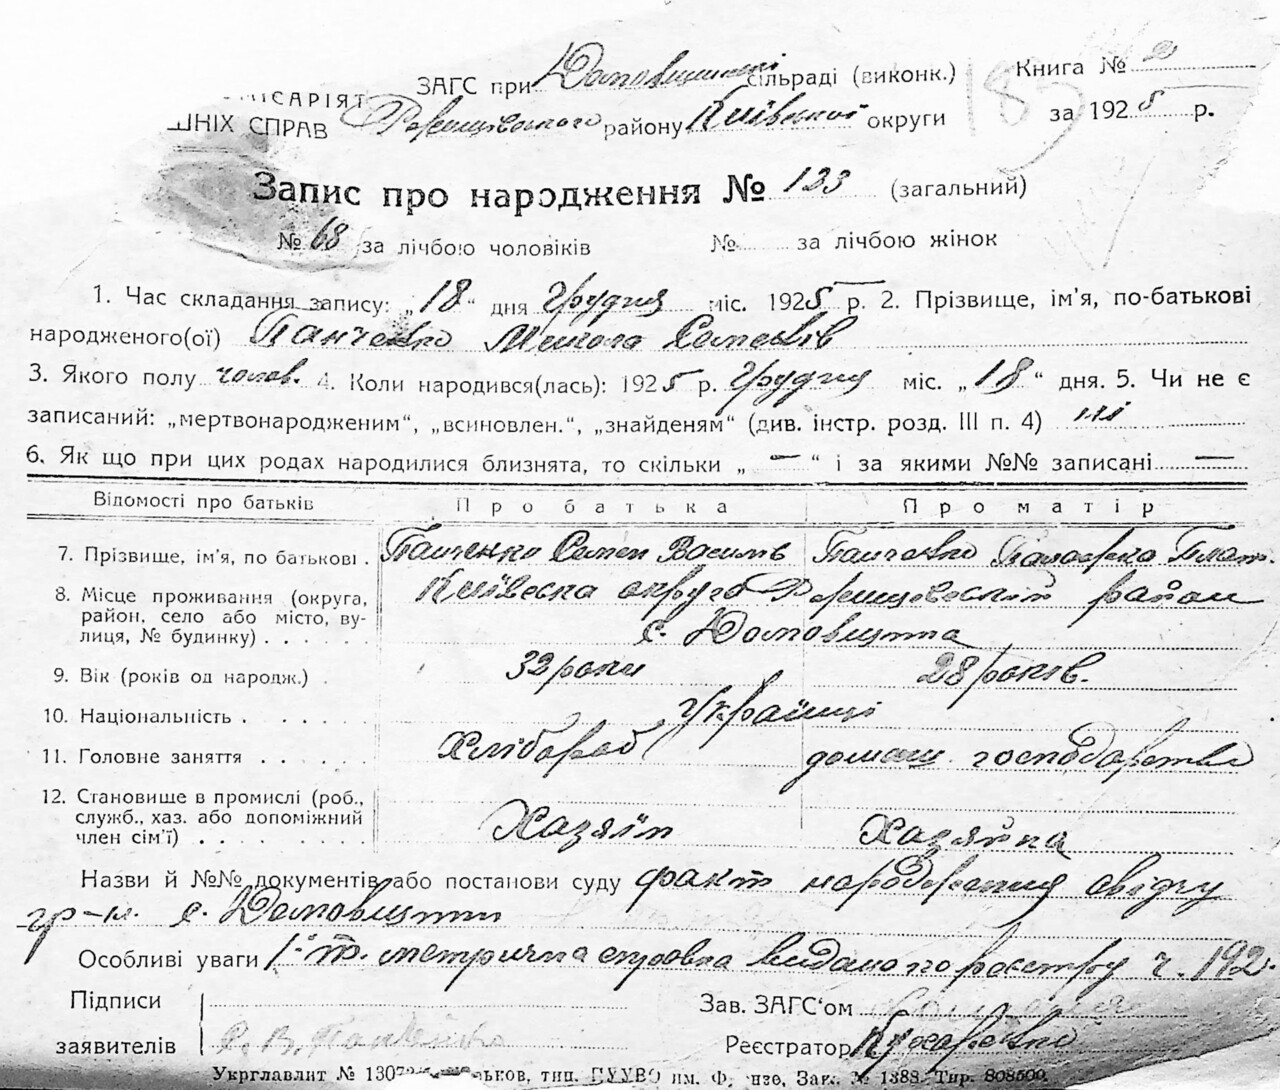 ЗАГС при Домовицькій сільраді (виконк.) Книга № 2
ІСАРІЯТ
ШНІХ СПРАВ району Київської округи за 1925 р.
183
Запис про народження № 133 (загальний)
№ 68 за лічбою чоловіків № за лічбою жінок
1. Час складання запису: „18“ дня грудня міс. 1925 р. 2. Прізвище, ім'я, по-батькові
народженого(ої) Панченко Микола Семенів
3. Якого полу чолов. 4. Коли народився(лась): 1925 р. грудня міс. „18“ дня. 5. Чи не є
записаний: „мертвонародженим“, „всиновлен.“, „знайденям“ (див. інстр. розд. III п. 4) ні
6. Як що при цих родах народилися близнята, то скільки „ — “ і за якими №№ записані —
Відомості про батьків Про батька Про матір
7. Прізвище, ім'я, по батькові . Панченко Семен Василів Панченко Палажка Плат.
8. Місце проживання (округа, район, село або місто, вулиця, № будинку) . . . . . Київска округа район
с. Домовицття
9. Вік (років од народж.) . 32 роки 28 років.
10. Національність . . . . . . Українці
11. Головне заняття . . . . . . Хлібороб домаш. господарство
12. Становище в промислі (роб., служб., хаз. або допоміжний член сім'ї) . . . . . . . Хазяїн Хазяйка
Назви й №№ документів або постанови суду факт народження свідчу
гр-н. с. Домовицття
Особливі уваги метрична справка видано по реєстру ч. 192.
Підписи Зав. ЗАГС‘ом
заявителів С. В. Панченко Реєстратор Кухаренко
Укрглавліт № 1307 ьков, тип. ПУУВО ім. Ф нзе, Зак. № 1388. Тир. 808500.